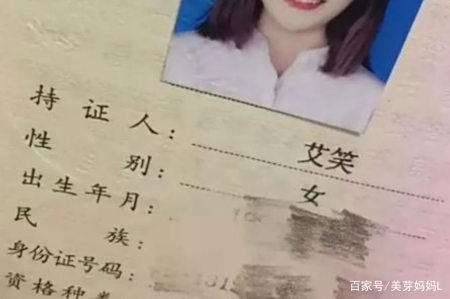 持证人：艾笑
性别：女
出生年月：
民族：
身份证号码：
资格种类
百家号/美芽妈妈L